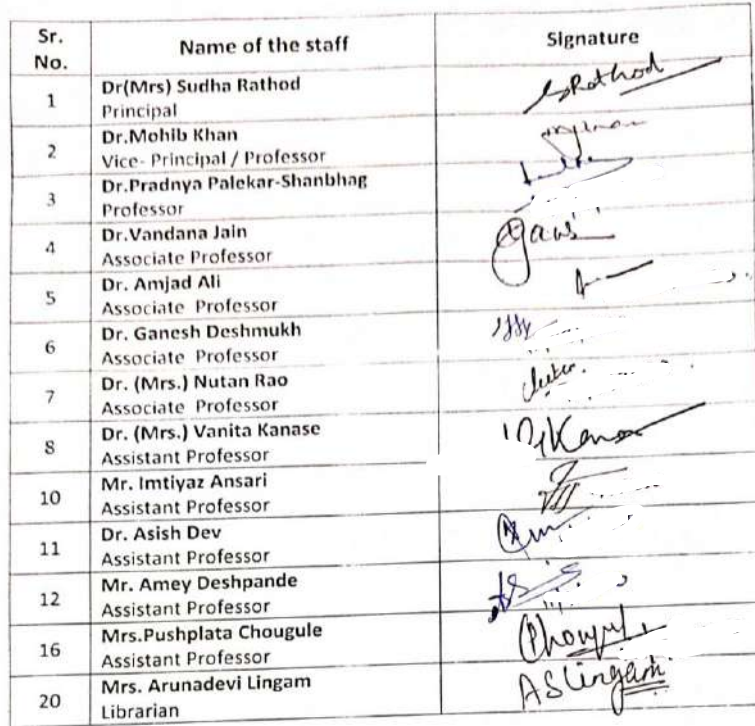 Sr. No. Name of the staff Signature
1 Dr(Mrs) Sudha Rathod SRathod
Principal
2 Dr.Mohib Khan
Vice- Principal / Professor
3 Dr.Pradnya Palekar-Shanbhag
Professor
4 Dr.Vandana Jain
Associate Professor
5 Dr. Amjad Ali
Associate Professor
6 Dr. Ganesh Deshmukh
Associate Professor
7 Dr. (Mrs.) Nutan Rao
Associate Professor
8 Dr. (Mrs.) Vanita Kanase
Assistant Professor
10 Mr. Imtiyaz Ansari
Assistant Professor
11 Dr. Asish Dev
Assistant Professor
12 Mr. Amey Deshpande
Assistant Professor
16 Mrs.Pushplata Chougule
Assistant Professor
20 Mrs. Arunadevi Lingam ASLingam
Librarian